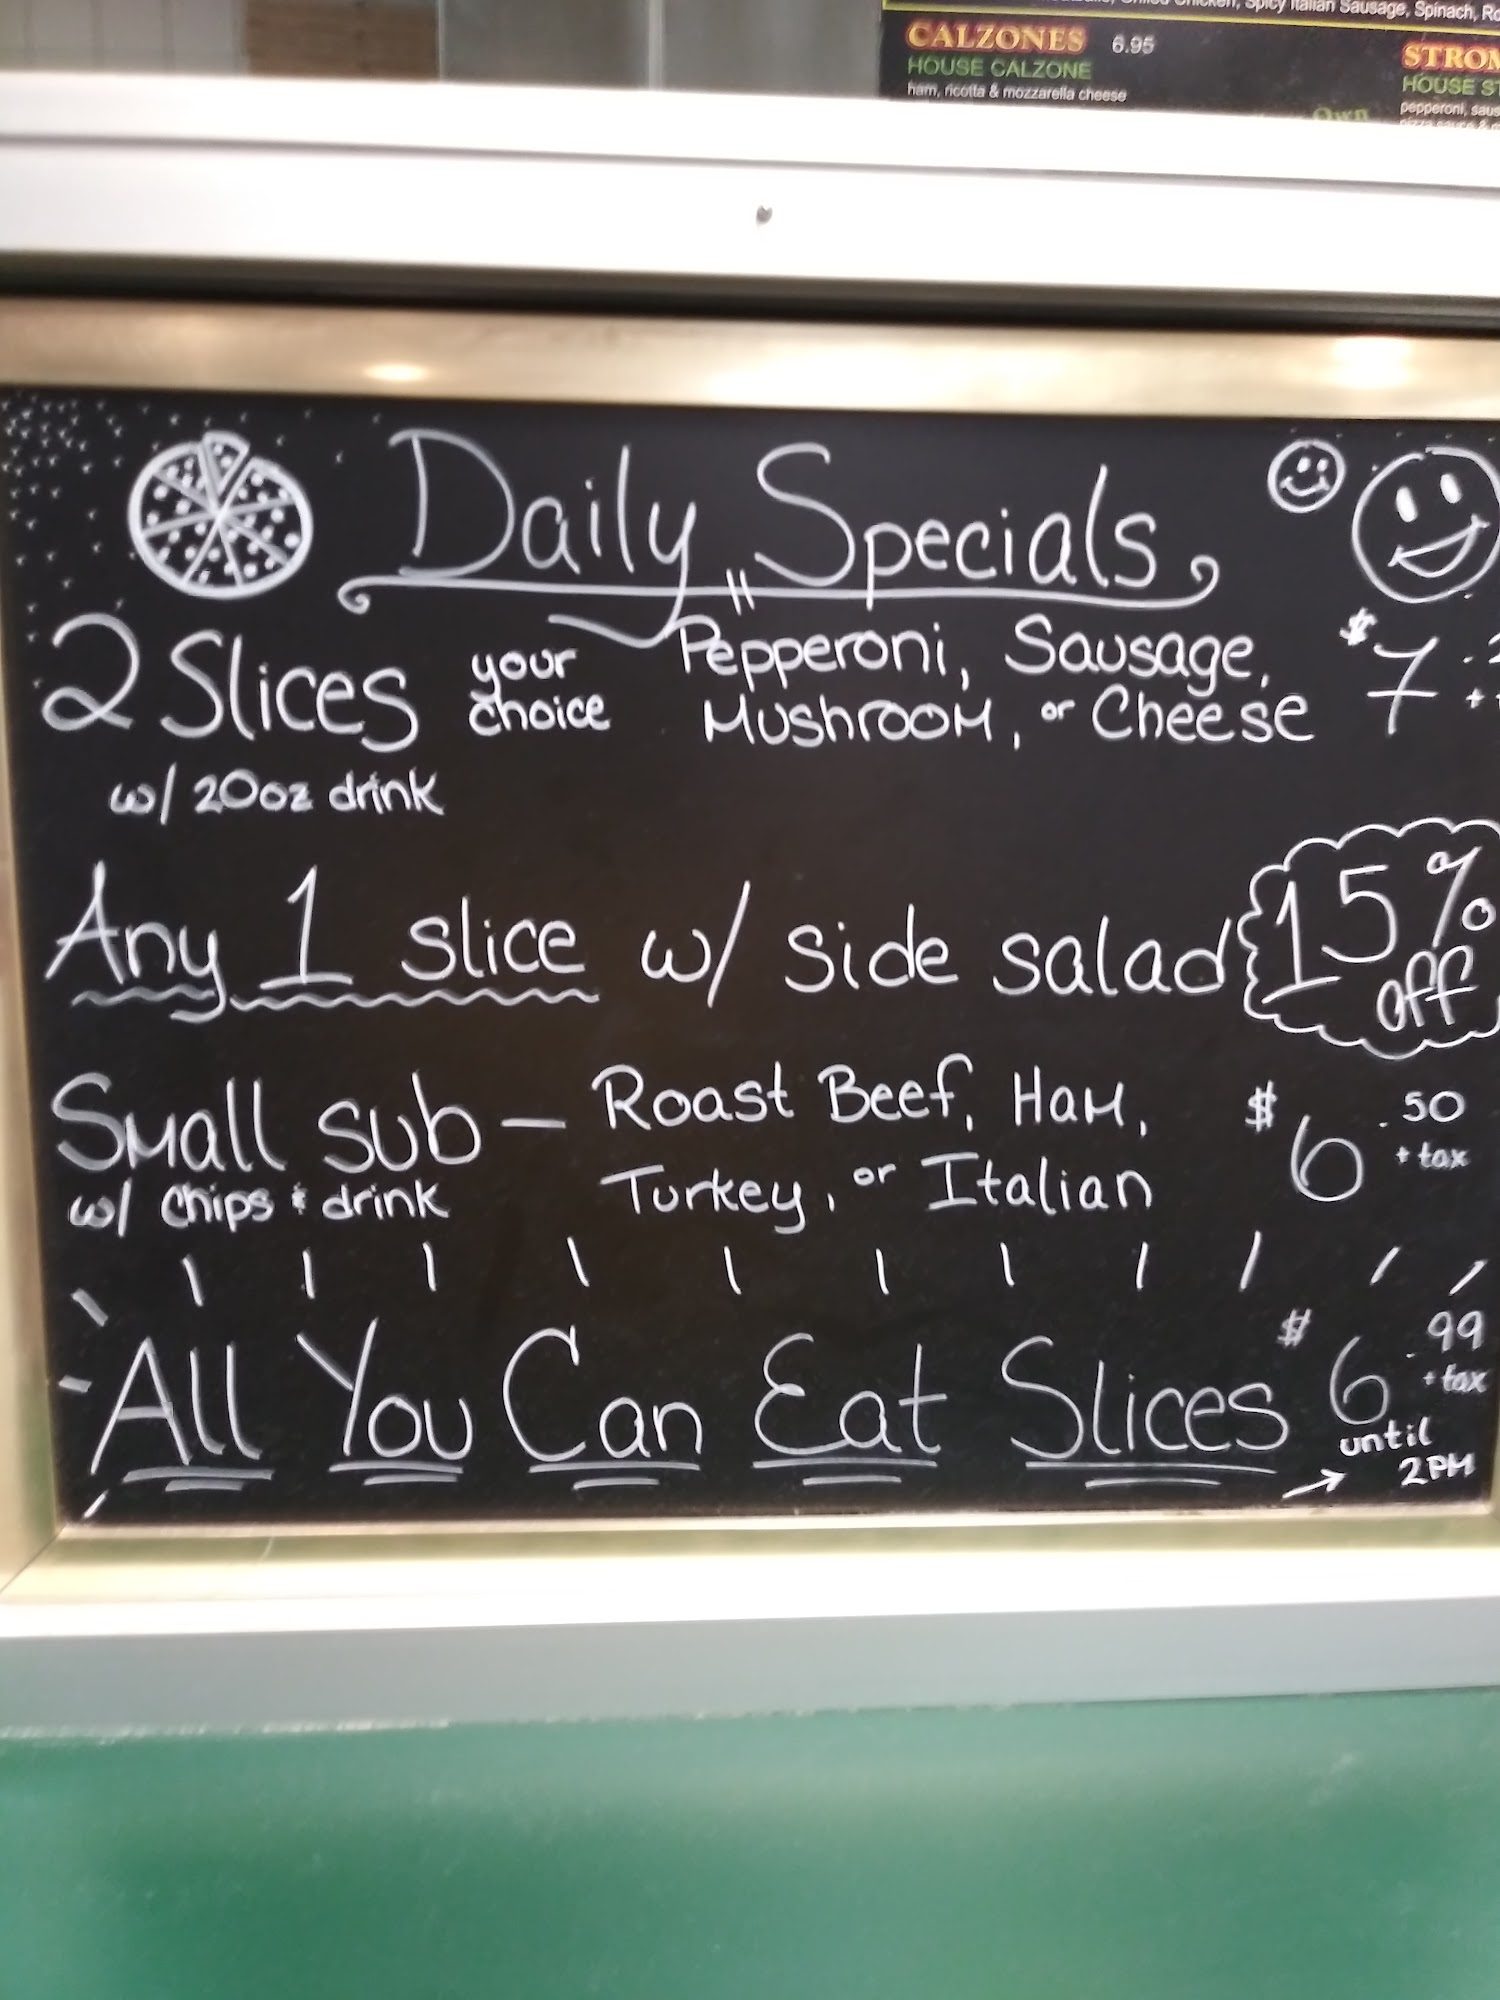 Grilled Chicken, Spicy Italian Sausage, Spinach,
CALZONES 6.95
HOUSE CALZONE
ham, ricotta & mozzarella cheese
Own
HOUSE
pepperoni,
Daily Specials
2 Slices your choice Pepperoni, Sausage, $7
Mushroom, or Cheese
w/ 20oz drink
Any 1 slice w/ side salad 15% off
Small sub - Roast Beef, Ham, $6.50
+ tax
w/ chips & drink Turkey, or Italian
All You Can Eat Slices $6.99
+ tax
until
→ 2PM